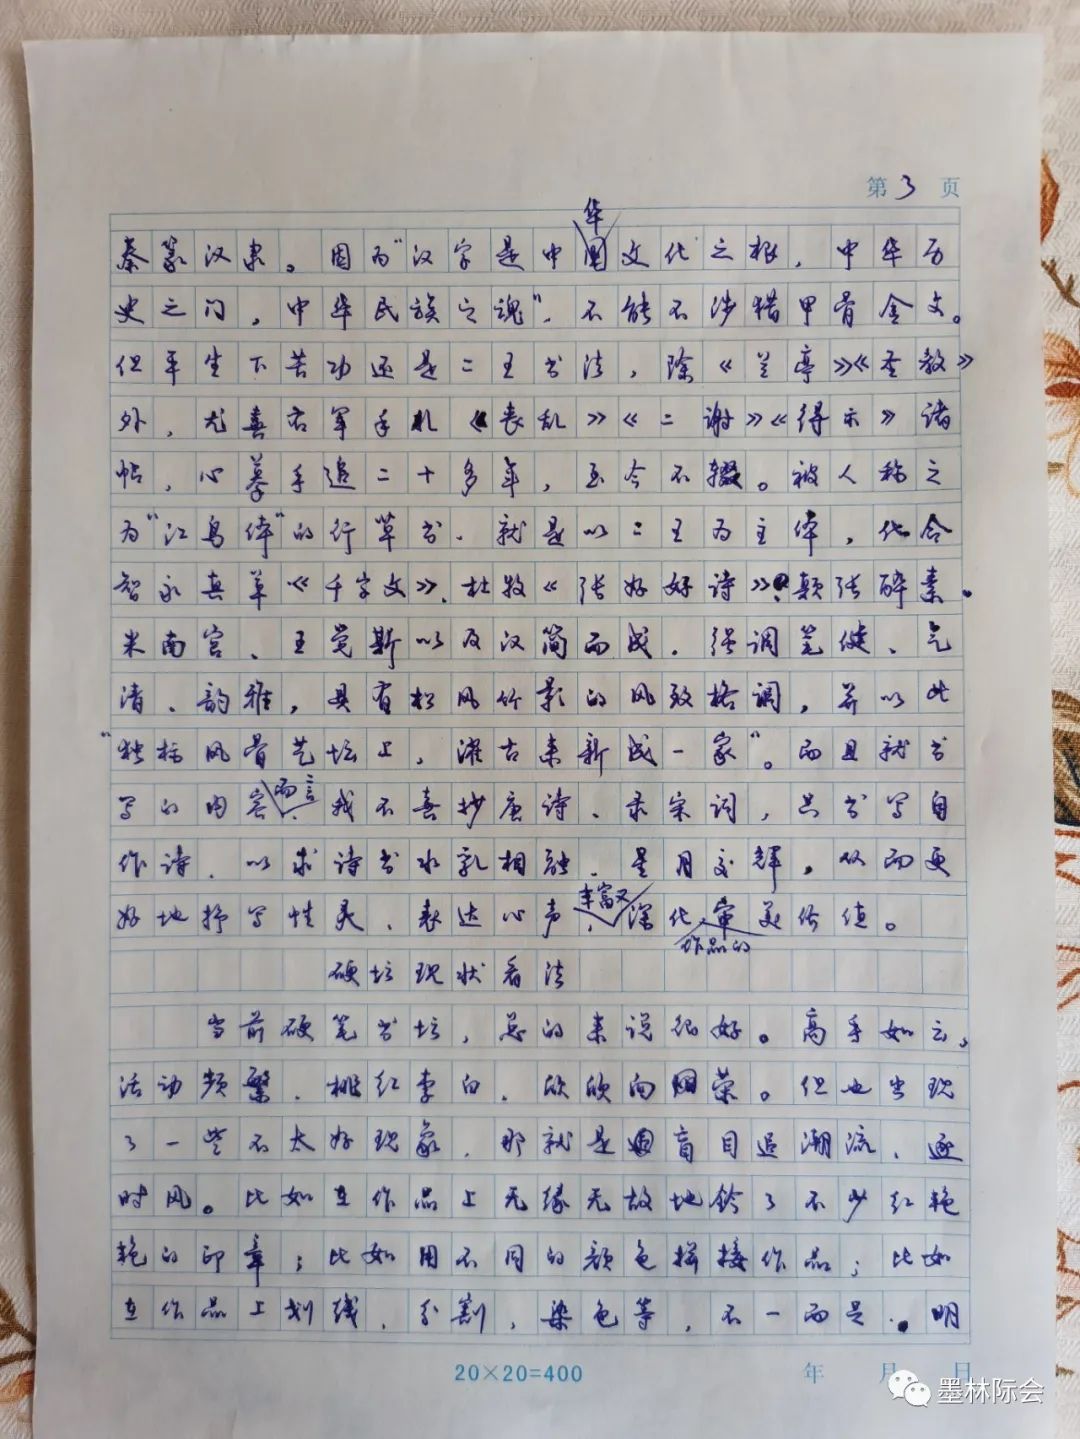 第3页
华
秦篆汉隶。因为"汉字是中国文化之根，中华历
史之门，中华民族之魂"，不能不涉猎甲骨金文。
但平生下苦功还是二王书法，除《兰亭》《圣教》
外，尤喜右军手札《丧乱》《二谢》《得示》诸
帖，心摹手追二十多年，至今不辍。被人称之
为"江鸟体"的行草书，就是以二王为主体，化合
智永真草《千字文》、杜牧《张好好诗》、颠张醉素、
米南宫、王觉斯以及汉简而成。强调笔健、气
清、韵雅，具有松风竹影的风致格调，并以此
"独标风骨艺坛上，濯古来新成一家"。而且就书
写的内容而言，我不喜抄唐诗、录宋词，只书写自
作诗，以求诗书水乳相融，星月交辉，从而更
好地抒写性灵、表达心声、丰富又深化作品的审美价值。
硬坛现状看法
当前硬笔书坛，总的来说很好。高手如云，
活动频繁，桃红李白，欣欣向荣。但也出现
了一些不太好现象，那就是盲目追潮流、逐
时风。比如在作品上无缘无故地钤了不少红艳
艳的印章；比如用不同的颜色拼接作品；比如
在作品上划线，分割，染色等，不一而足。明
20×20=400
年 月 日
墨林际会